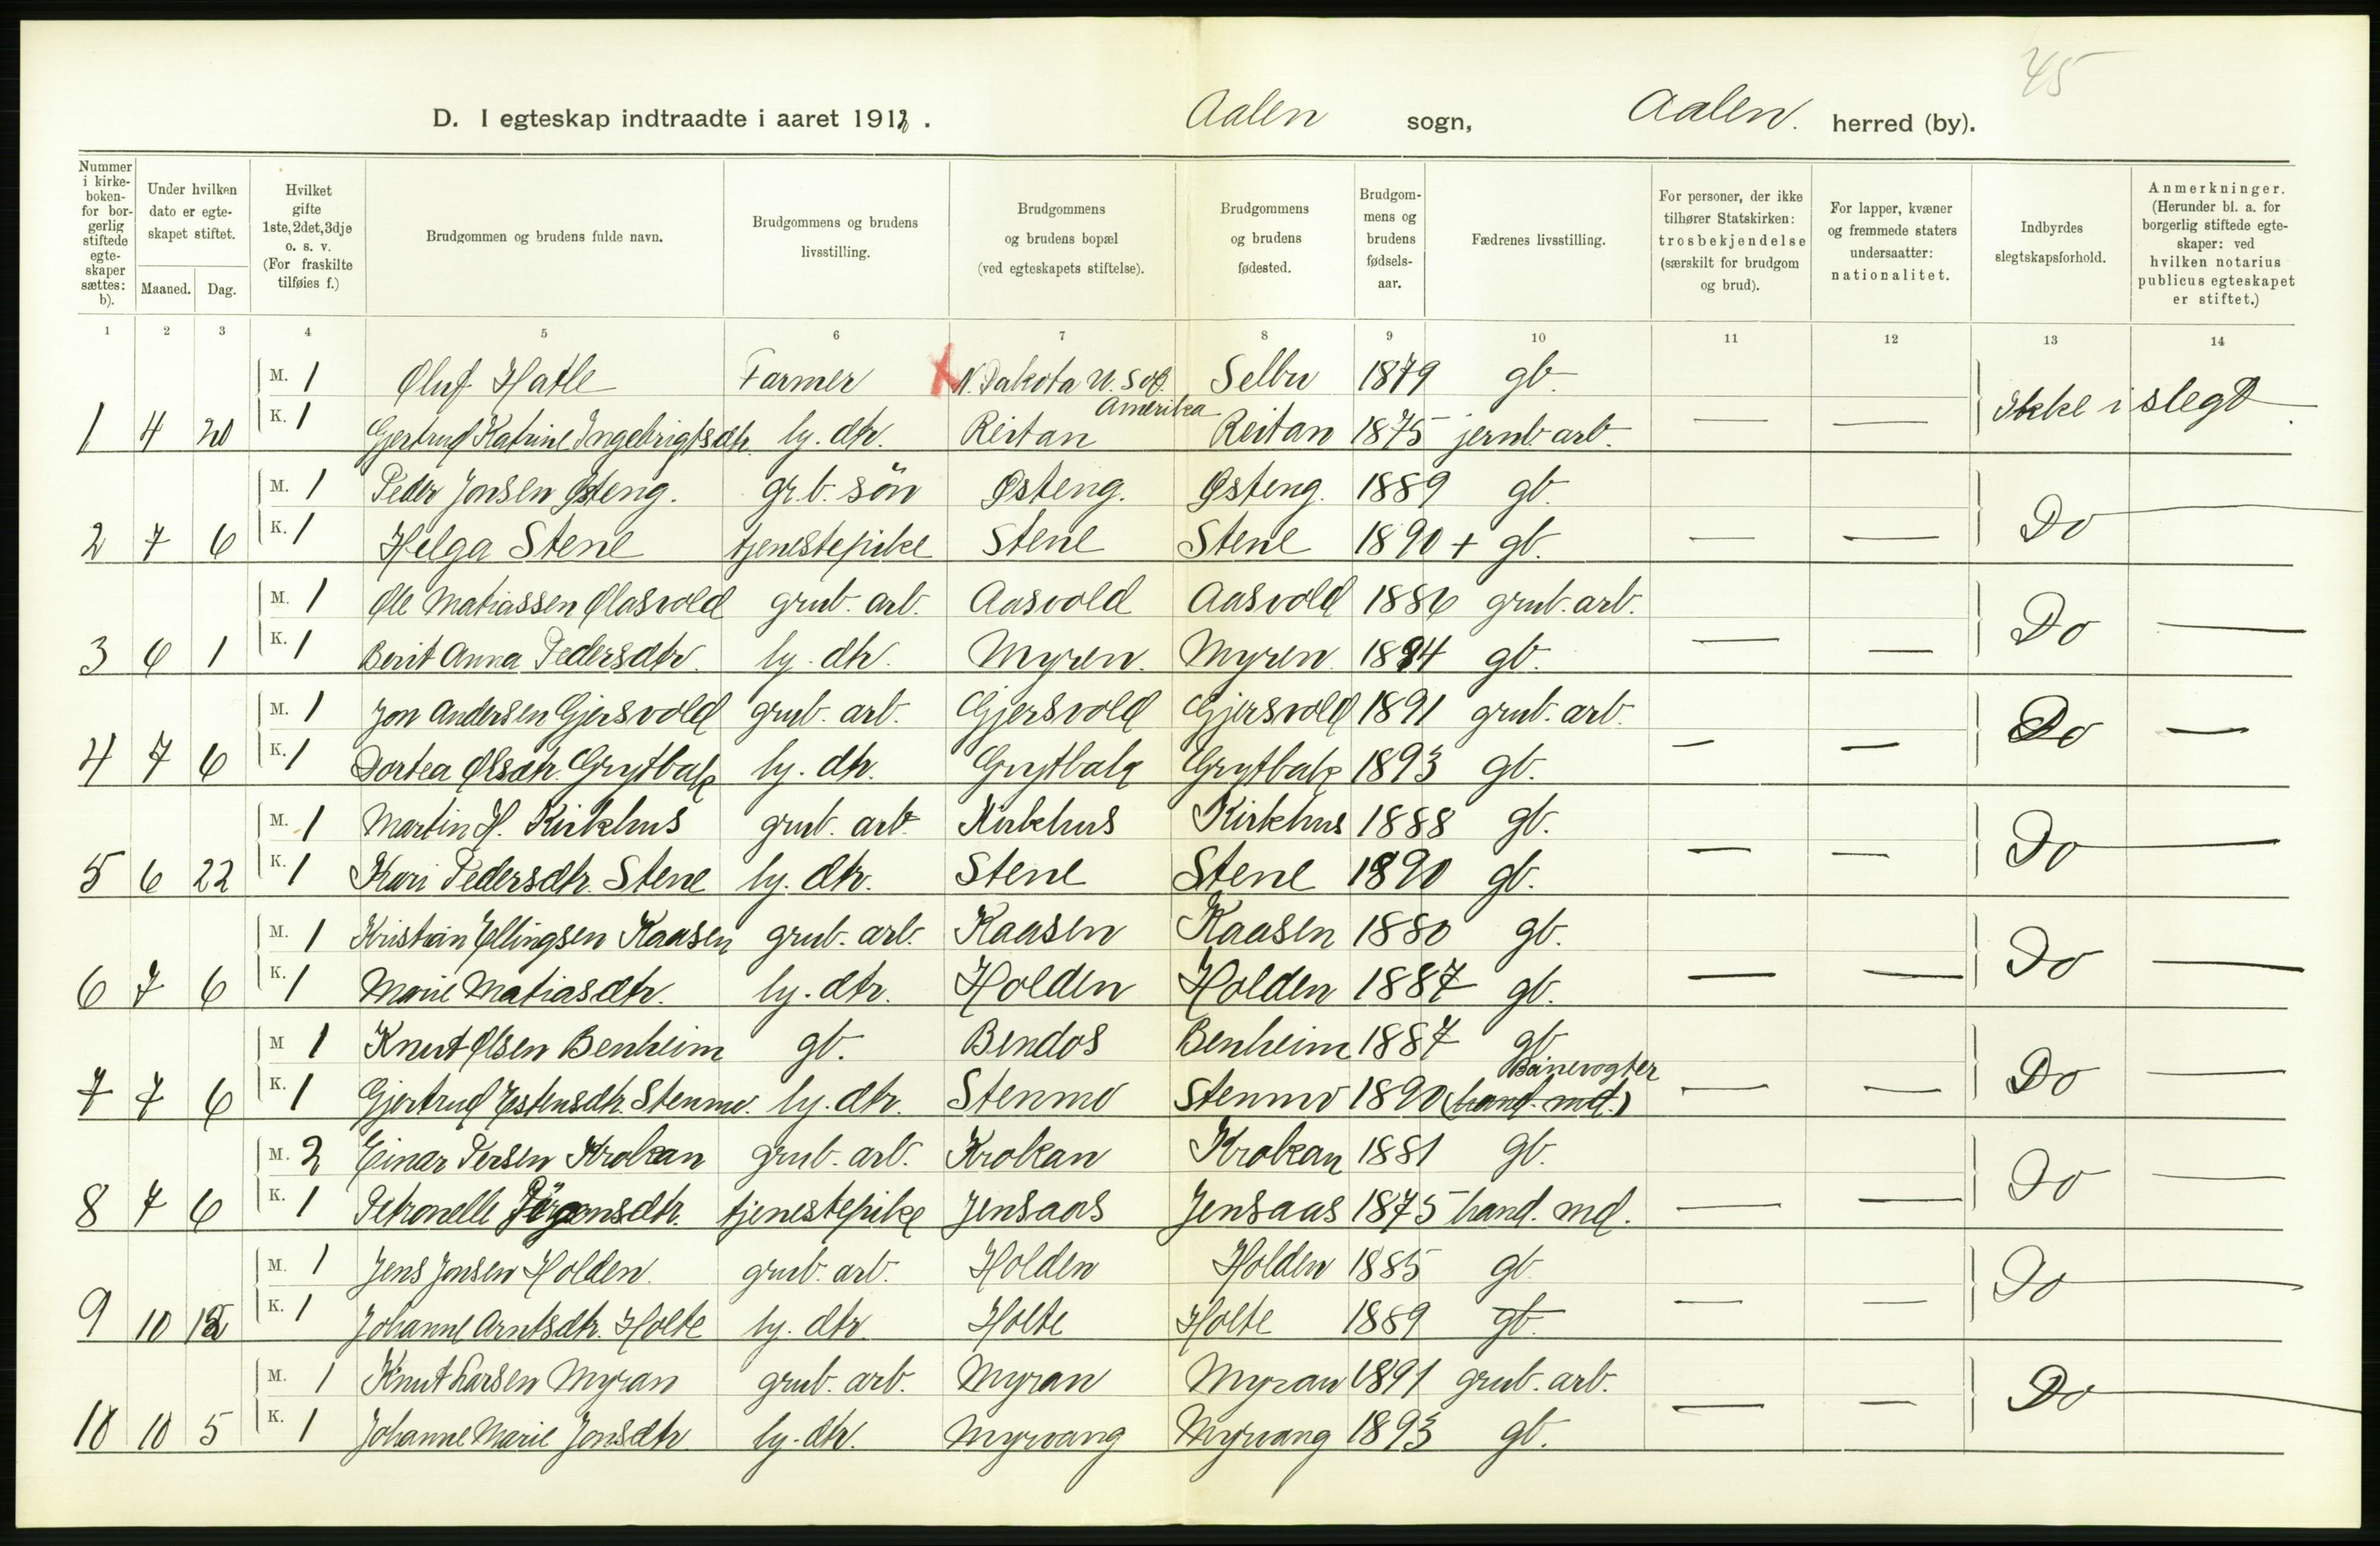 45
D. I egteskap indtraadte i aaret 1912. Aalen sogn, Aalen. herred (by).
Nummer i kirke-boken- for bor-gerlig stiftede egte-skaper sættes: b).
Under hvilken dato er egte-skapet stiftet.
Maaned. Dag.
Hvilket gifte 1ste, 2det, 3dje o. s. v. (For fraskilte tilføies f.)
Brudgommen og brudens fulde navn.
Brudgommens og brudens livsstilling.
Brudgommens og brudens bopæl (ved egteskapets stiftelse).
Brudgommens og brudens fødested.
Brudgom-mens og brudens fødsels-aar.
Fædrenes livsstilling.
For personer, der ikke tilhører Statskirken: trosbekjendelse (særskilt for brudgom og brud).
For lapper, kvæner og fremmede staters undersaatter: nationalitet.
Indbyrdes slegtskapsforhold.
Anmerkninger. (Herunder bl. a. for borgerlig stiftede egte-skaper: ved hvilken notarius publicus egteskapet er stiftet.)
1 2 3 4 5 6 7 8 9 10 11 12 13 14
M. 1 Oluf Hatle Farmer X N. Dakota U. S. Amerika Selbu 1879 gb.
1 4 20 K. 1 Gjertrud Katrine Ingebrigtsdtr. ly. dtr. Reitan Reitan 1875 jernb. arb. — — Ikke i slegt —
M. 1 Peder Jonsen Østeng. gr.b. sön Østeng. Østeng. 1889 gb.
2 7 6 K. 1 Helga Stene tjenestepike Stene Stene 1890 + gb. — — Do —
M. 1 Ole Matiassen Aasvold grub. arb. Aasvold Aasvold 1886 grub. arb.
3 6 1 K. 1 Berit Anna Pedersdtr. ly. dtr. Myren. Myren. 1894 gb. — — Do —
M. 1 Jon Andersen Gjersvold grub. arb. Gjersvold Gjersvold 1891 grub. arb.
4 7 6 K. 1 Dortea Olsdtr. Grytbak ly. dtr. Grytbak Grytbak 1893 gb. — — Do —
M. 1 Martin H. Kirkhus grub. arb. Kirkhus Kirkhus 1888 gb.
5 6 22 K. 1 Kari Pedersdtr. Stene ly. dtr. Stene Stene 1890 gb. — — Do —
M. 1 Kristian Ellingsen Kaasen grub. arb. Kaasen Kaasen 1880 gb.
6 7 6 K. 1 Marie Matiasdtr. ly. dtr. Holden Holden 1887 gb. — — Do —
M 1 Knut Olsen Benheim gb. Bendos Benheim 1887 gb.
7 7 6 K. 1 Gjertrud Estensdtr. Stenmo. ly. dtr. Stenmo Stenmo 1890 Banevogter (hand. md.) — — Do —
M. 2 Einar Persen Krokan grub. arb. Krokan Krokan 1881 gb.
8 7 6 K. 1 Petronelle Jörgensdtr. tjenestepike Jensaas Jensaas 1875 hand. md. — — Do —
M. 1 Jens Jonsen Holden. grub. arb. Holden Holden 1885 gb.
9 10 K. 1 Johanne Arntsdtr. Holte ly. dtr. Holte Holte 1889 gb. — — Do —
M. 1 Knut Larsen Myran grub. arb. Myran Myran 1891 grub. arb.
10 10 5 K. 1 Johanne Marie Jonsdtr. ly. dtr. Myrvang Myrvang 1893 gb. — — Do —